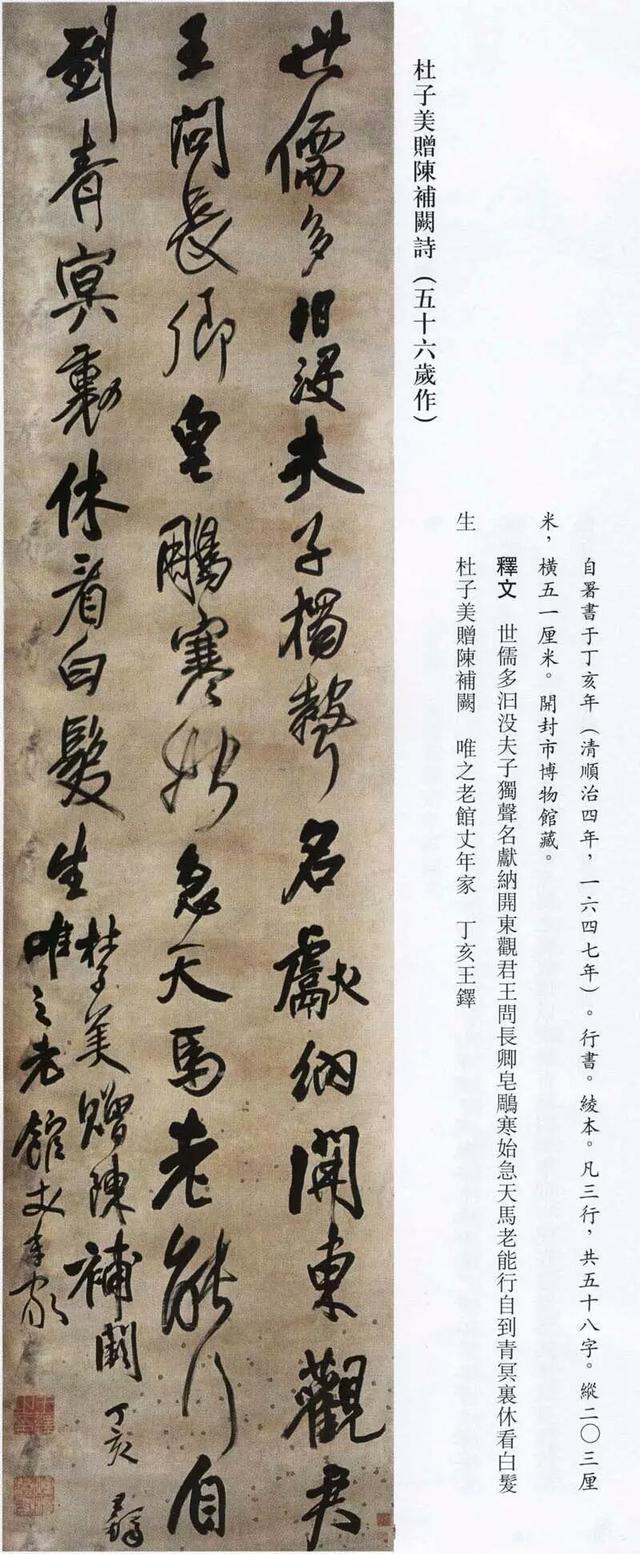 杜子美贈陳補闕詩（五十六歲作）
自署書于丁亥年（清順治四年，一六四七年）。行書。綾本。凡三行，共五十八字。縱二〇三厘
米，橫五一厘米。開封市博物館藏。
釋文 世儒多汩没夫子獨聲名獻納開東觀君王問長卿皂鵰寒始急天馬老能行自到青冥裏休看白髮
生 杜子美贈陳補闕 唯之老館丈年家 丁亥王鐸
世儒多汩没夫子獨聲名獻納開東觀君
王問長卿皂鵰寒始急天馬老能行自
到青冥裏休看白髮生
杜子美贈陳補闕 丁亥王鐸
唯之老館丈年家